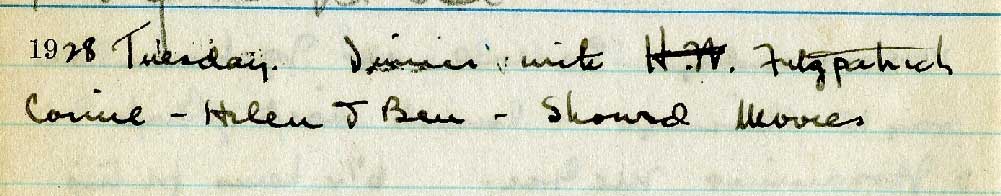 1928 Tuesday. Dinner with H.W. Fitzpatrick
Corine - Helen & Ben - Showed Movies